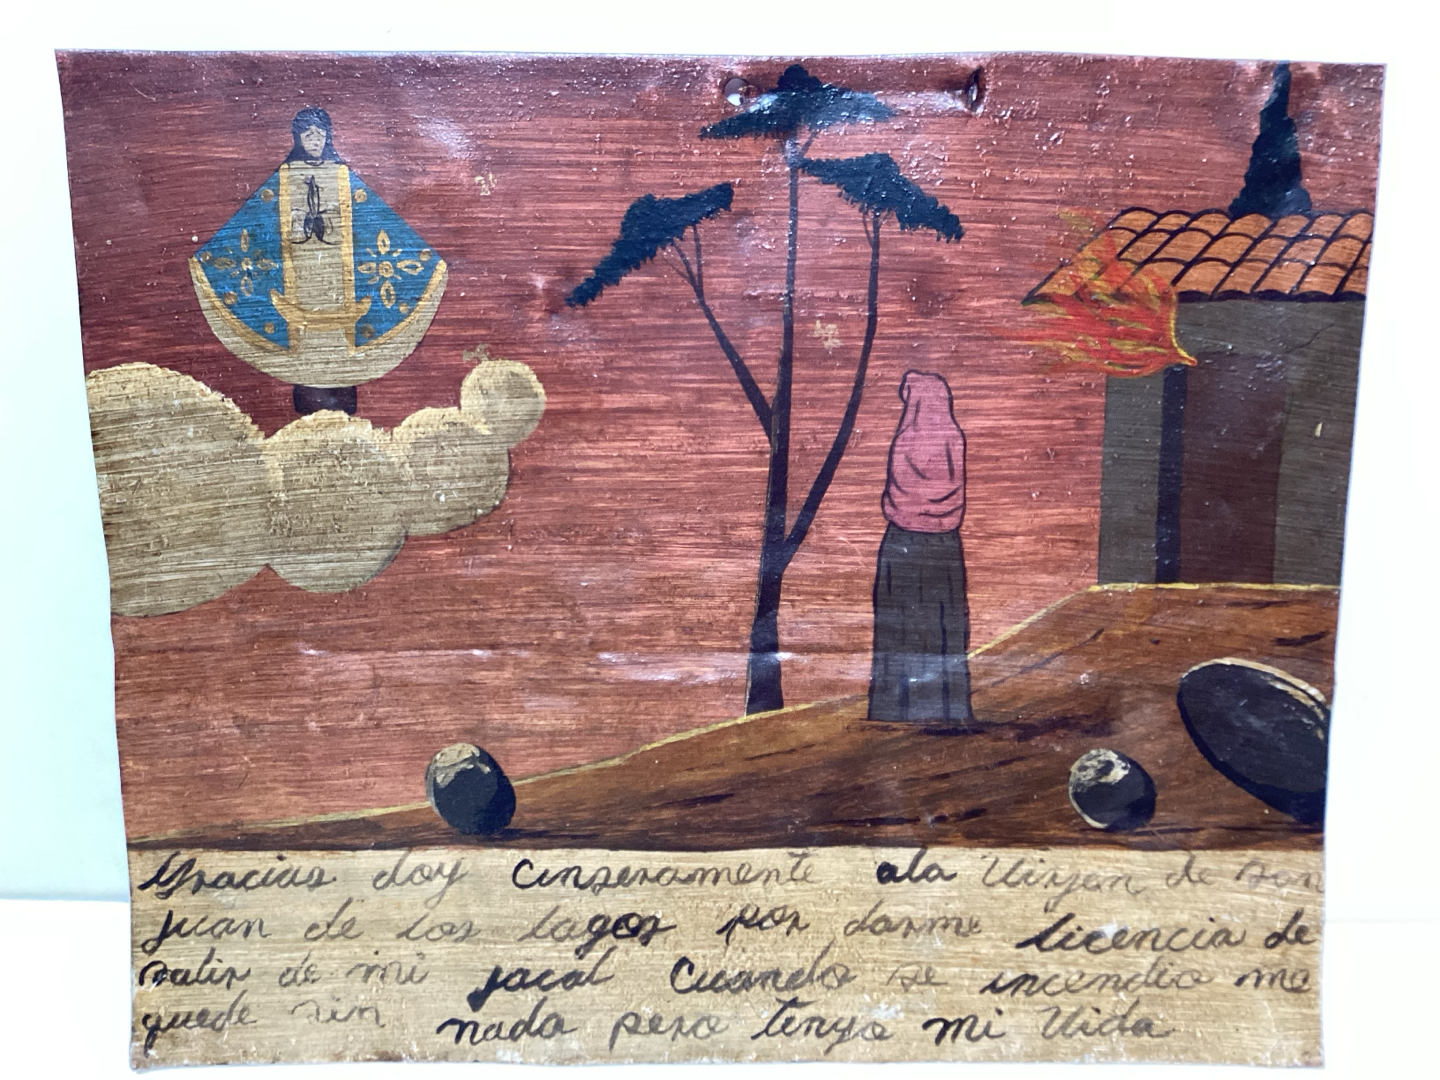 Gracias doy cinseramente ala Virjen de san
juan de los lagos por darme licencia de
salir de mi jacal Cuando se incendio me
quede sin nada pero tengo mi Vida